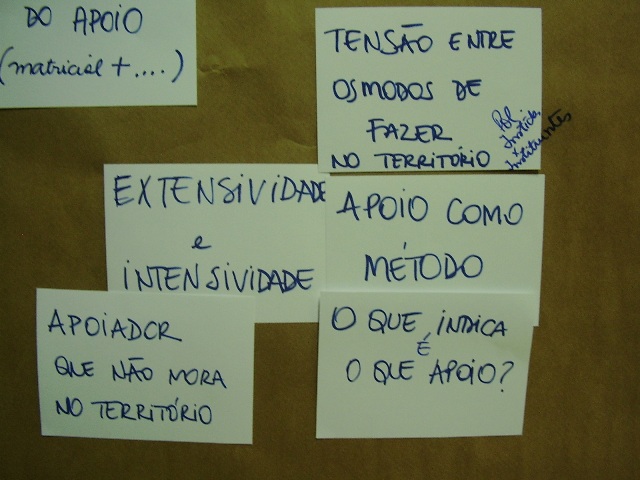 DO APOIO
(matricial + ....)
TENSÃO ENTRE
OS MODOS DE
FAZER
NO TERRITÓRIO
Pol.
x
EXTENSIVIDADE
e
INTENSIVIDADE
APOIO COMO
MÉTODO
APOIADOR
QUE NÃO MORA
NO TERRITÓRIO
O QUE INDICA
É
O QUE APOIO?